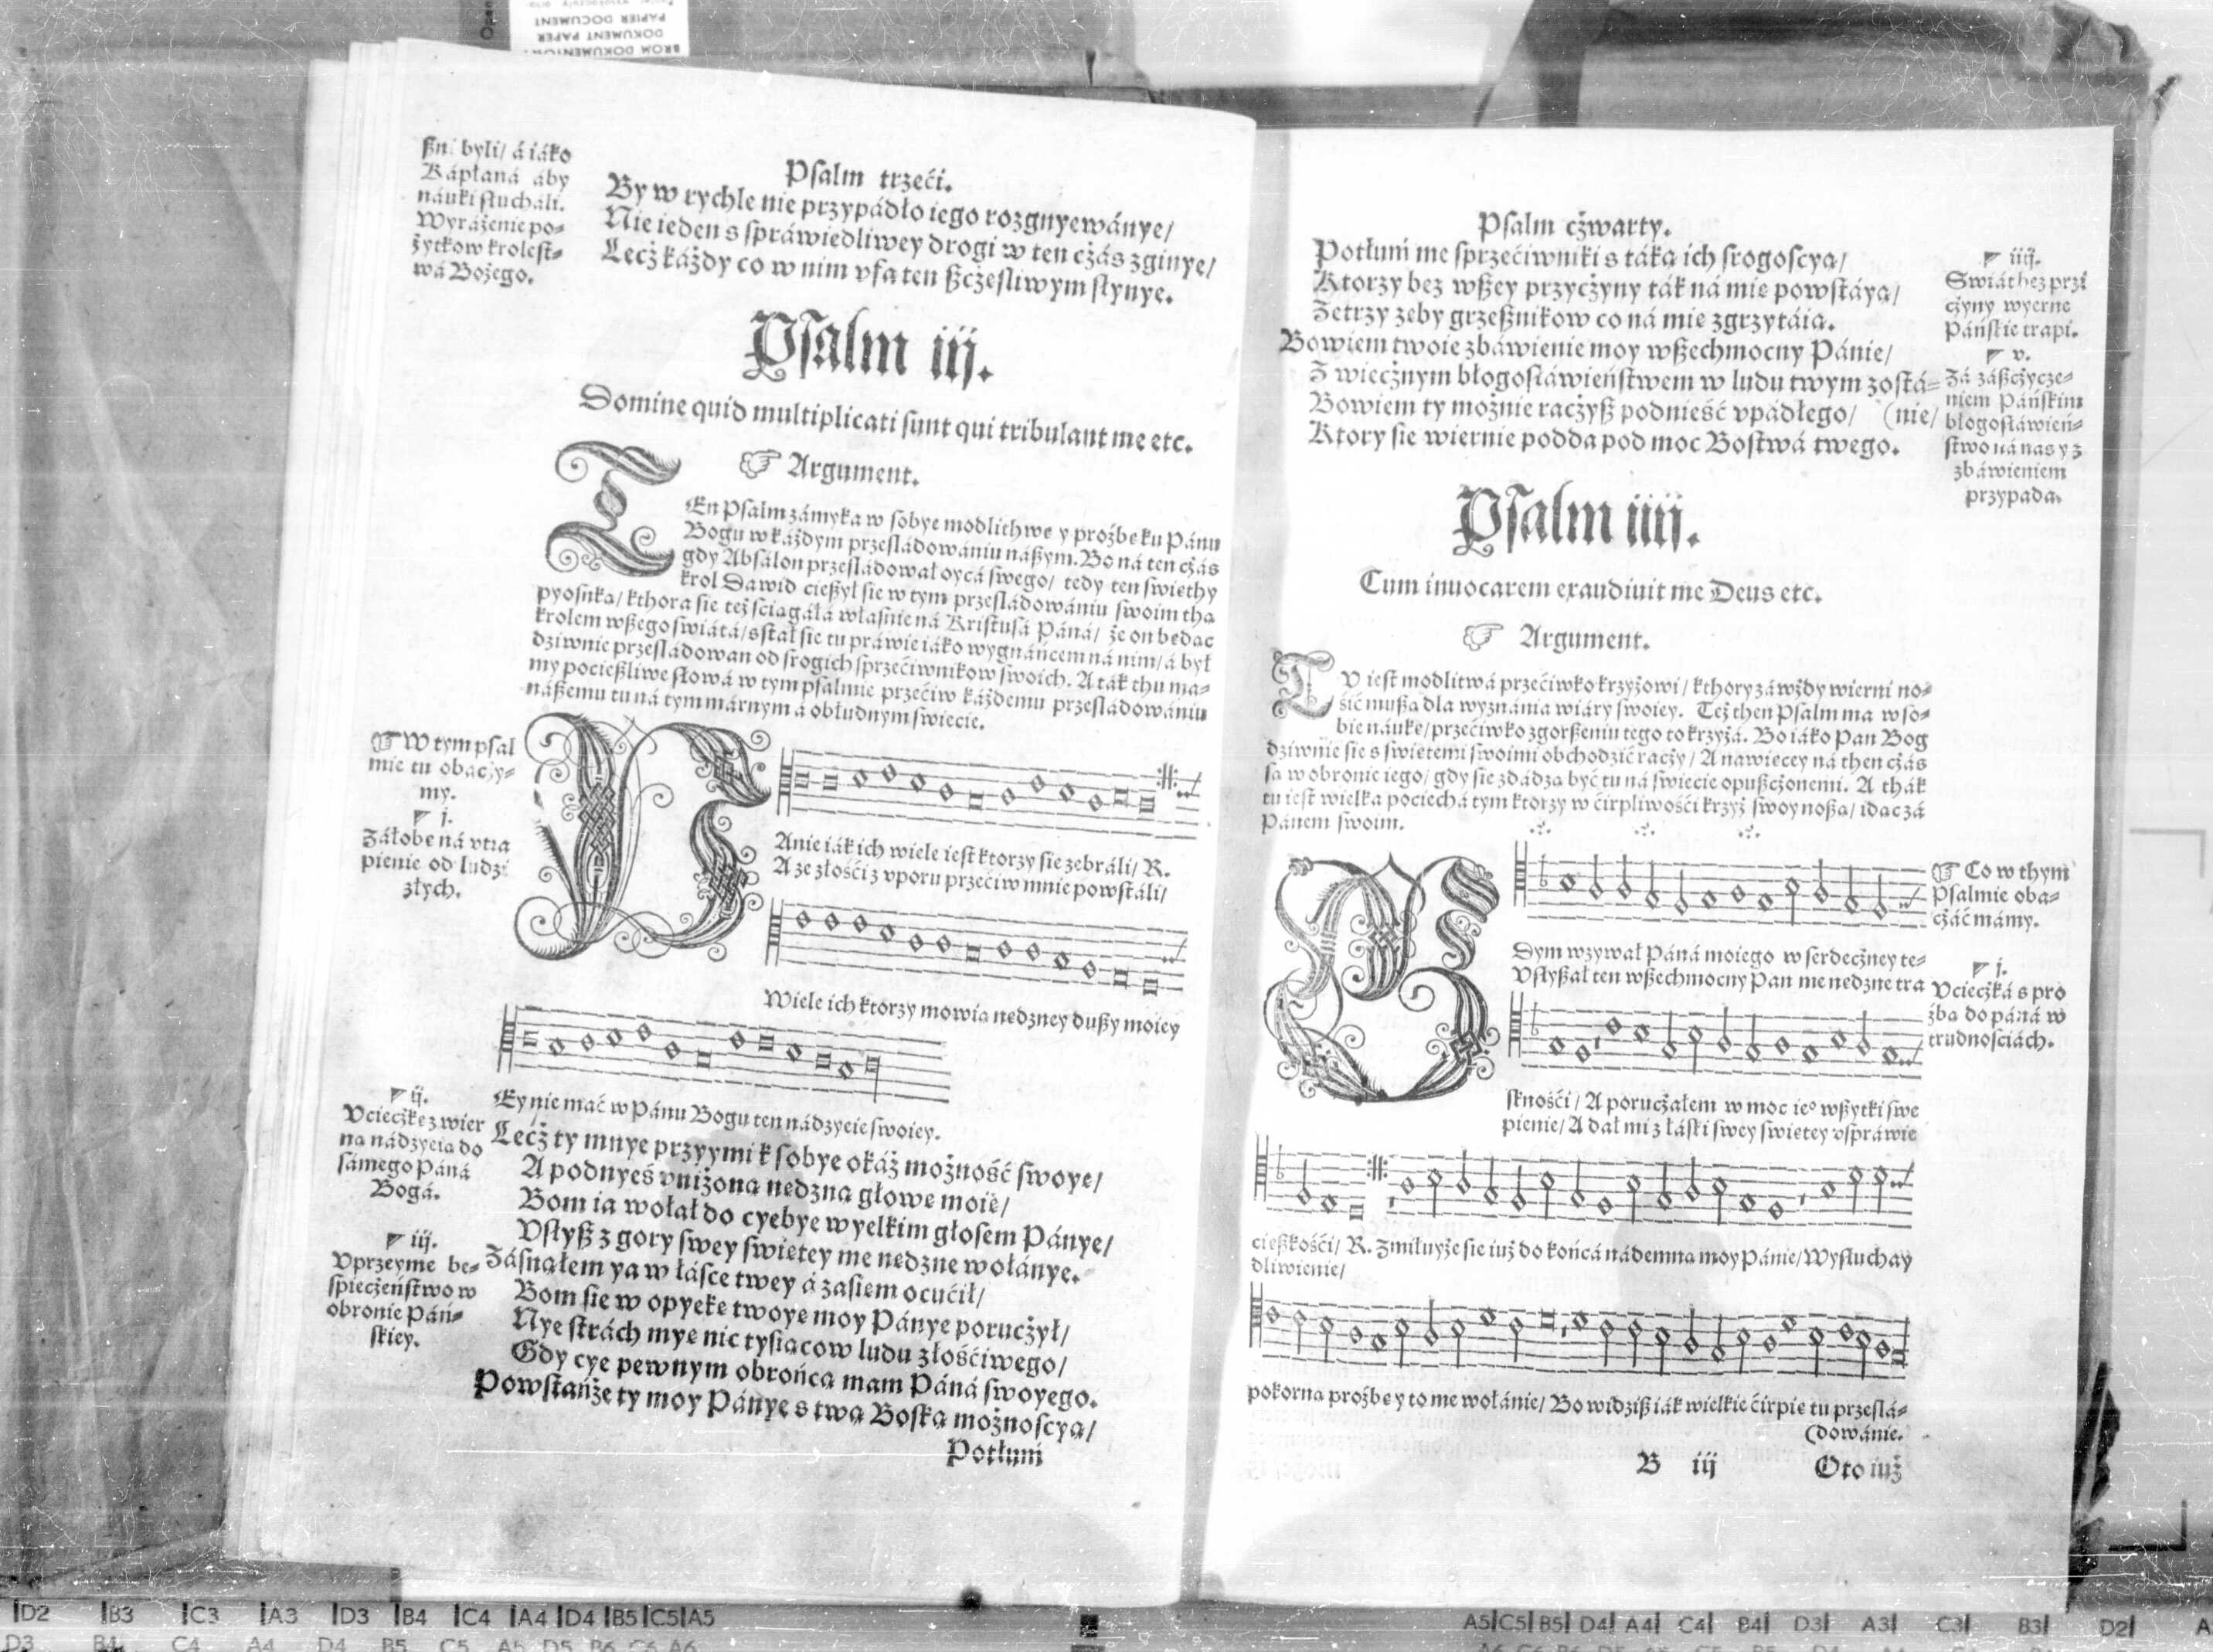 PAPIER DOCUMENT
DOKUMENT PAPER
Psalm trzeći.
byli/ á iáko
Kápłaná áby
náuki słuchali.
Wyráżenie po-
żytkow krolest-
wá Bożego.
By w rychle nie przypádło iego rozgnyewánye/
Nie ieden s spráwiedliwey drogi w ten cżás zginye/
Lecż káżdy co w nim vfa ten ßcżesliwym słynye.
Psalm iij.
Domine quid multiplicati sunt qui tribulant me etc.
☞ Argument.
TEn Psalm zámyka w sobye modlithwe y proźbe ku Pánu
Bogu w káżdym przesládowániu náßym. Bo ná ten cżás
gdy Absálon przesládował oycá swego/ tedy ten swiethy
krol Dawid cießył sie w tym przesládowániu swoim tha
pyosnka/ kthora sie też sciągáłá własnie ná Kristusá Páná/ że on bedac
krolem wßego swiátá/ sstał sie tu práwie iáko wygnáńcem ná nim/ á był
dziwnie przesládowan od srogich sprzećiwnikow swoich. A ták thu ma-
my pocießliwe słowá w tym psalmie przećiw káżdemu przesládowániu
náßemu tu ná tym márnym á obłudnym swiecie.
☞ W tym psal
mie tu obacży-
my.
j.
Záłobe ná vtra
pienie od ludzi
złych.
Anie iák ich wiele iest ktorzy sie zebráli/ R.
A ze złośći z vporu przećiw mnie powstáli/
Wiele ich ktorzy mowia nedzney dußy moiey
Ey nie mać w Pánu Bogu ten nádzyeie swoiey.
ij.
Vcieczke z wier
na nádzyeia do
sámego Páná
Bogá.
Lećż ty mnye przyymi k sobye okáż możność swoye/
A podnyeś vniżona nedzna głowe moie/
Bom ia wołał do cyebye wyelkim głosem Pánye/
Vsłyß z gory swey swietey me nedzne wołánye.
iij.
Vprzeyme be-
spiecżeństwo w
obronie Páń-
skiey.
Zásnąłem ya w łásce twey á zasiem ocućił/
Bom sie w opyeke twoye moy Pánye porucżył/
Nye strách mye nic tysiącow ludu złośćiwego/
Gdy cye pewnym obrońca mam Páná swoyego.
Powstáńże ty moy Pánye s twa Boska możnoscya/
Potłumi
Psalm cżwarty.
Potłumi me sprzećiwniki s táka ich srogoscya/
Ktorzy bez wßey przycżyny ták ná mie powstáya/
Zetrzy zeby grzeßnikow co ná mie zgrzytáia.
Bowiem twoie zbáwienie moy wßechmocny Pánie/
Z wiecżnym błogosłáwieństwem w ludu twym zostá-
Bowiem ty możnie racżyß podnieść vpádłego/ (nie/
Ktory sie wiernie podda pod moc Bostwá twego.
iiij.
Swiát bez przi
cżyny wyerne
Páńskie trapi.
v.
Zá záßcżycże-
niem Páńskim
błogosłáwień-
stwo ná nas y z
zbáwieniem
przypada.
Psalm iiij.
Cum inuocarem exaudiuit me Deus etc.
☞ Argument.
TV iest modlitwá przećiwko krzyżowi/ kthory záwżdy wierni no-
śić mußa dla wyznánia wiáry swoiey. Też then Psalm ma w so-
bie náuke/ przećiwko zgorßeniu tego to krzyżá. Bo iáko Pan Bog
dziwnie sie s swietemi swoimi obchodzić racży/ A nawiecey ná then cżás
sa w obronie iego/ gdy sie zdádza być tu ná swiecie opußcżonemi. A thák
tu iest wielka pociechá tym ktorzy w ćirpliwośći krzyż swoy noßa/ idac zá
Pánem swoim.
☞ Co w thym
Psalmie oba-
cżáć mámy.
Dym wzywał Páná moiego w serdecżney te-
Vsłyßał ten wßechmocny Pan me nedzne tra
j.
Vcieczká s pro
źba do páná w
trudnosciách.
sknośći/ A porucżałem w moc ie° wßytki swe
pienie/ A dał mi z łáski swey swietey vspráwie
cießkośći/ R. Zmiłuyże sie iuż do końcá nádemna moy Pánie/ Wysłuchay
dliwienie/
pokorna proźbe y to me wołánie/ Bo widziß iák wielkie ćirpie tu przeslá-
(dowánie.
B iij
Oto iuż
D2 B3 C3 A3 D3 B4 C4 A4 D4 B5 C5 A5
A5 C5 B5 D4 A4 C4 B4 D3 A3 C3 B3 D2
D3 B4 C4 A4 D4 B5 C5 A5 D5 B6 C6 A6